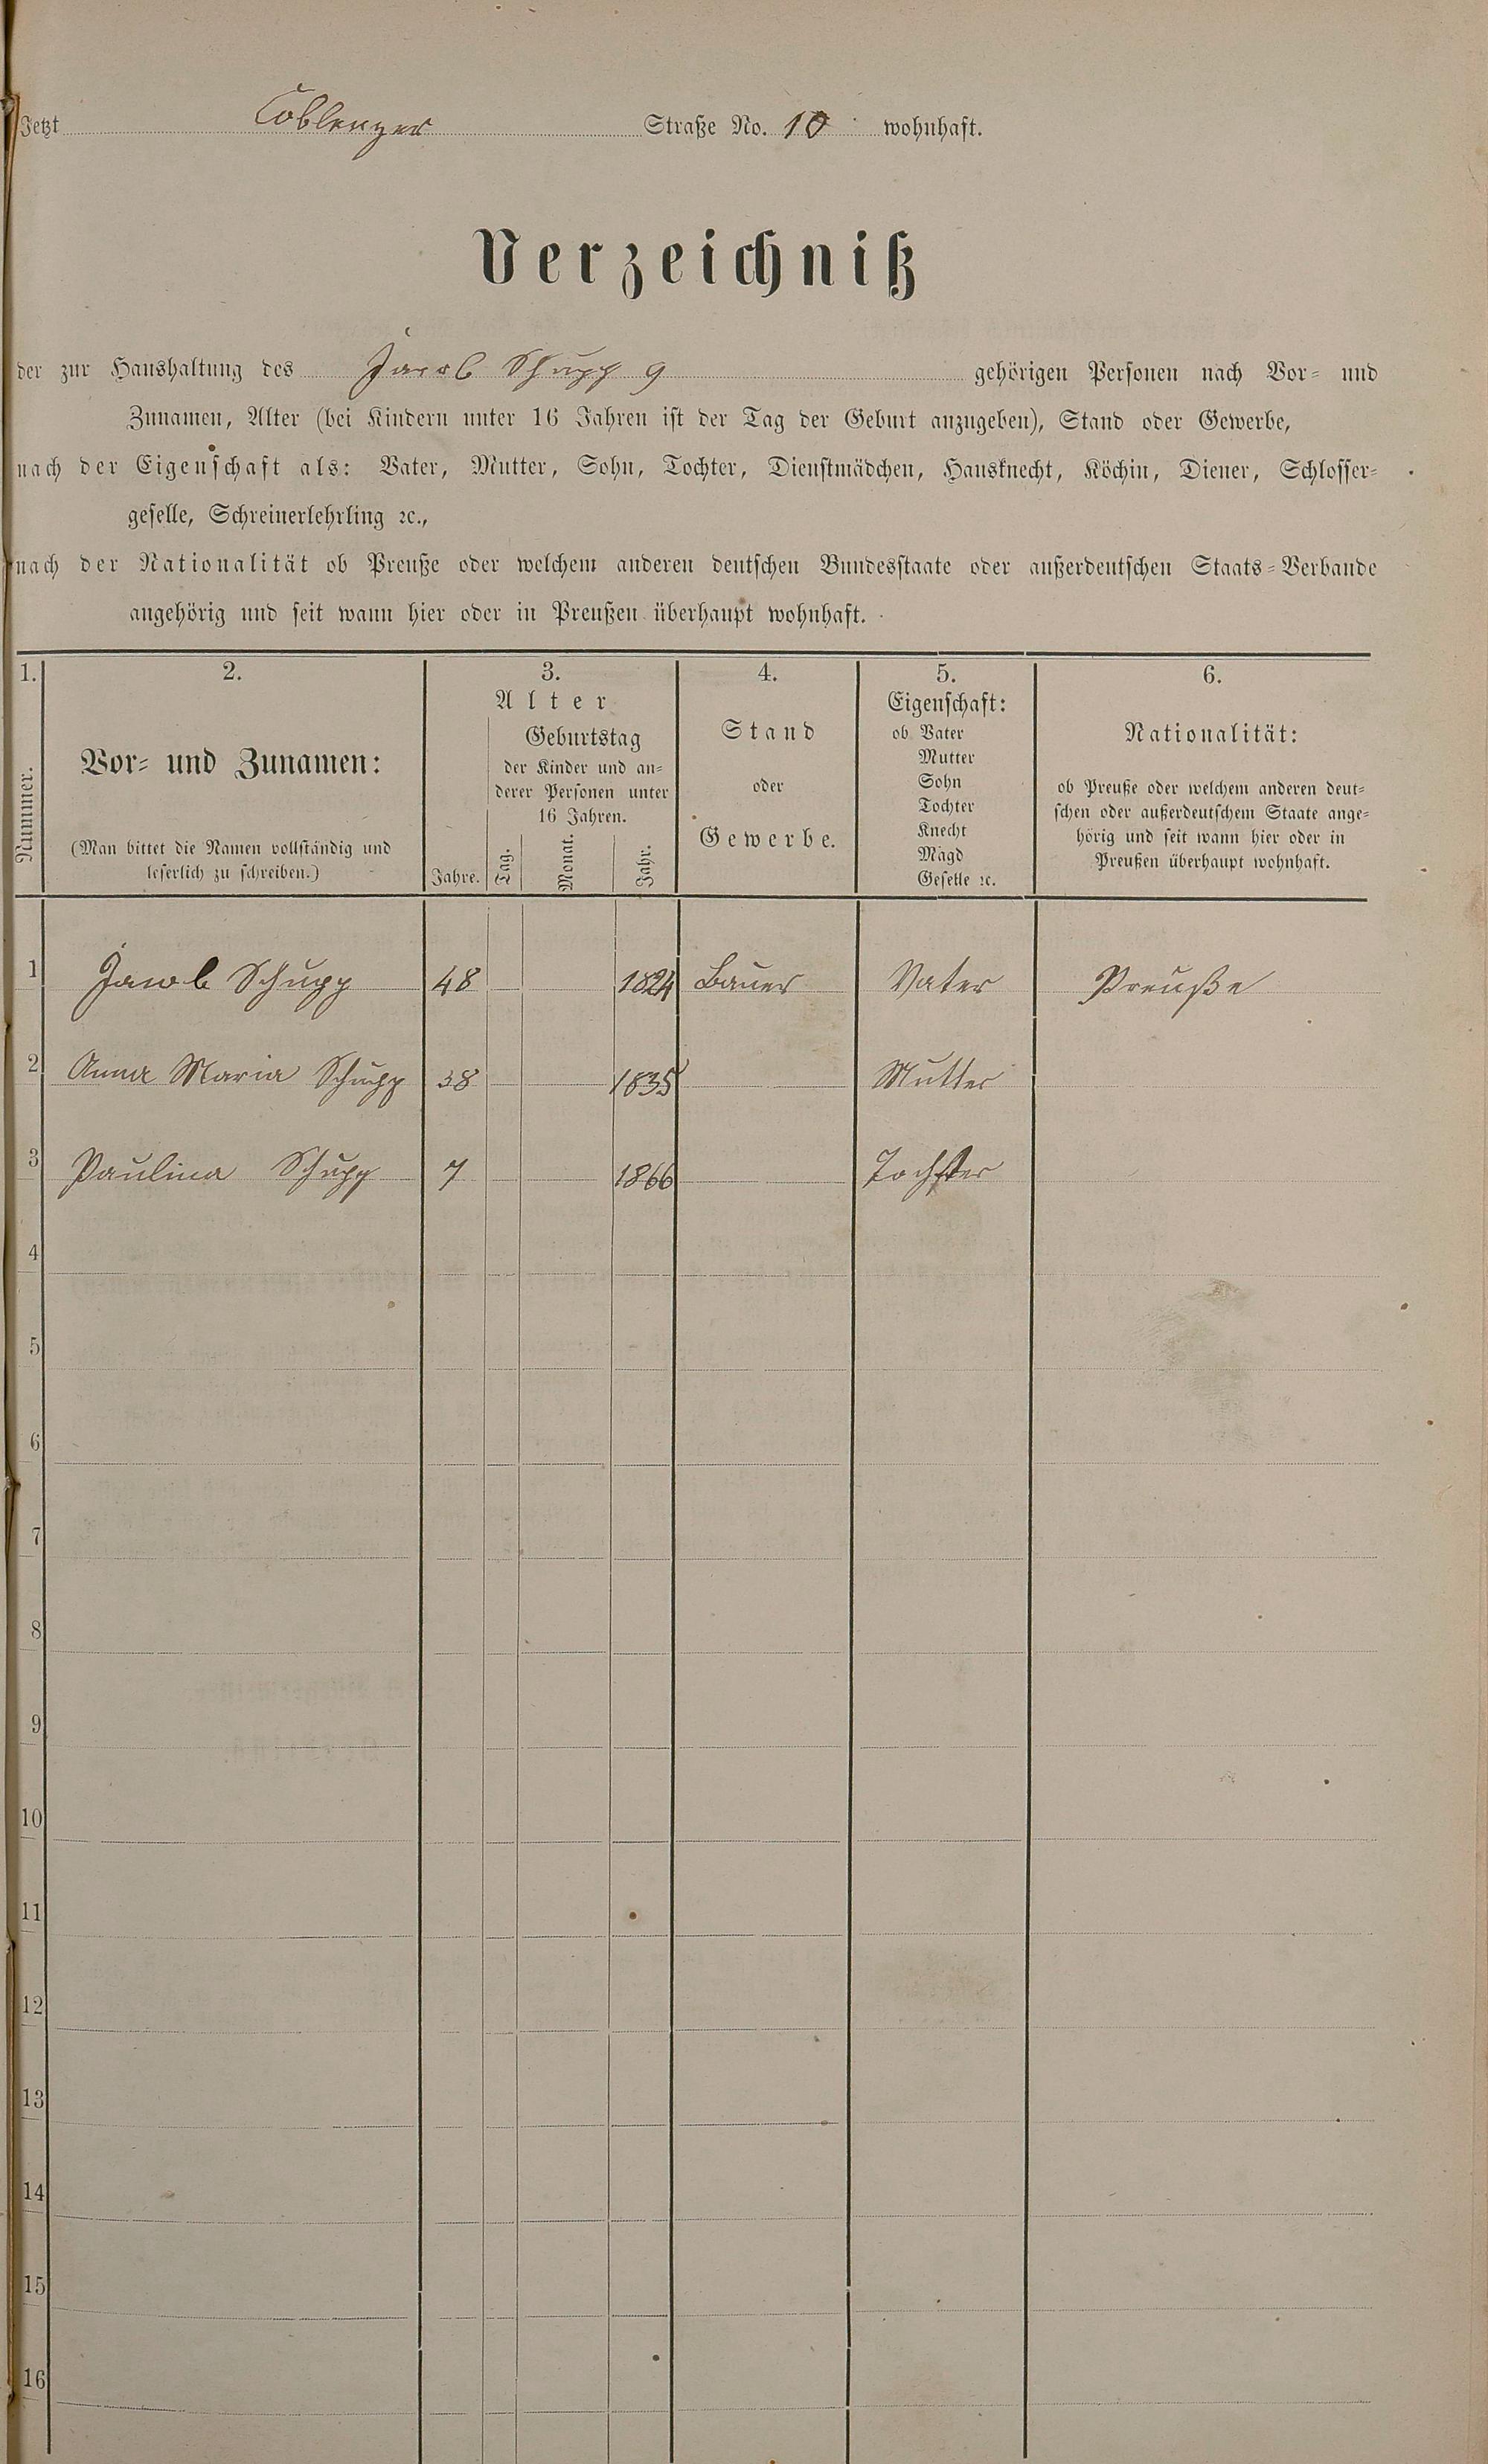 Jetzt Coblenzer Straße No. 10 wohnhaft.
Verzeichniß
der zur Haushaltung des Jacob Schupp 9 gehörigen Personen nach Vor- und
Zunamen, Alter (bei Kindern unter 16 Jahren ist der Tag der Geburt anzugeben), Stand oder Gewerbe,
nach der Eigenschaft als: Vater, Mutter, Sohn, Tochter, Dienstmädchen, Hausknecht, Köchin, Diener, Schlosser-
geselle, Schreinerlehrling ꝛc.,
nach der Nationalität ob Preuße oder welchem anderen deutschen Bundesstaate oder außerdeutschen Staats-Verbande
angehörig und seit wann hier oder in Preußen überhaupt wohnhaft.
1. 2. 3. 4. 5. 6.
Nummer.
Vor- und Zunamen:
(Man bittet die Namen vollständig und
leserlich zu schreiben.)
Alter
Jahre.
Geburtstag
der Kinder und an-
derer Personen unter
16 Jahren.
Tag. Monat. Jahr.
Stand
oder
Gewerbe.
Eigenschaft:
ob Vater
Mutter
Sohn
Tochter
Knecht
Magd
Geselle ꝛc.
Nationalität:
ob Preuße oder welchem anderen deut-
schen oder außerdeutschem Staate ange-
hörig und seit wann hier oder in
Preußen überhaupt wohnhaft.
1 Jacob Schupp 48 1824 Bauer Vater Preuße
2 Anna Maria Schupp 38 1835 Mutter
3 Paulina Schupp 7 1866 Tochter
4
5
6
7
8
9
10
11
12
13
14
15
16